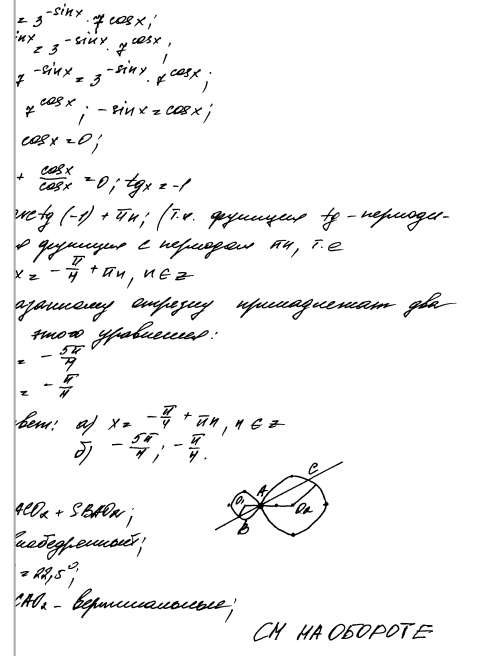 = 3^-sinx · 7^cosx;
inx = 3^-sinx · 7^cosx;
7^-sinx = 3^-sinx · 7^cosx;
7^cosx; -sinx = cosx;
cosx = 0;
+ cosx/cosx = 0; tgx = -1
ctg(-1) + πn; (т.к. функция tg - периоди-
я функция с периодом πn, т.е
x = -π/4 + πn, n ∈ z
азанному отрезку принадлежат два
этого уравнения:
= -5π/4
= -π/4
вет: а) x = -π/4 + πn, n ∈ z
б) -5π/4; -π/4.
C
A
O₁
O₂
B
ACO₂ + SBAO₂;
внобедренный;
= 22,5°;
CAO₂ - вертикальные;
СМ НА ОБОРОТЕ